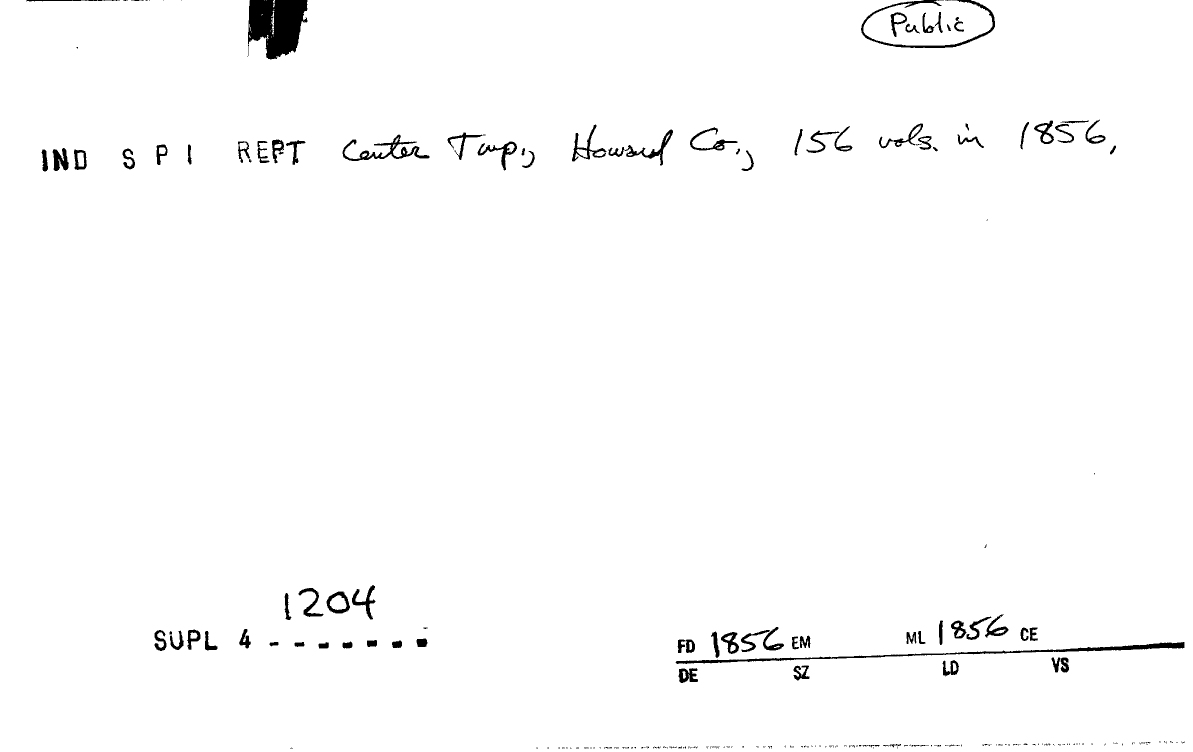 Public
IND S P I REPT Center Twp., Howard Co., 156 vols. in 1856,
1204
SUPL 4 - - - - - - -
FD 1856 EM ML 1856 CE
DE SZ LD VS